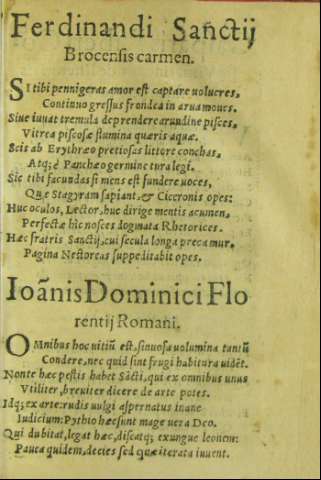 Ferdinandi Sanctij
Brocensis carmen.
SI tibi pennigeras amor est captare volucres,
Continuo gressus frondea in arua moues.
Siue iuuat tremula deprendere arundine pisces,
Vitrea piscosæ flumina quæris aquæ.
Scis ab Erythræo pretiosas littore conchas,
Atq; è Panchæo germine tura legi.
Sic tibi facundas si mens est fundere uoces,
Quæ Stagyram sapiant, & Ciceronis opes:
Huc oculos, Lector, huc dirige mentis acumen,
Perfectæ hîc nosces dogmata Rhetorices.
Hæc fratris Sanctij, cui secula longa precamur,
Pagina Nestoreas suppeditabit opes.
Ioãnis Dominici Flo
rentij Romani.
OMnibus hoc uitiũ est, sinuosa uolumina tantũ
Condere, nec quid sint frugi habitura uidẽt.
Nonte hæc pestis habet Sãcti, qui ex omnibus unus
Vtiliter, breuiter dicere de arte potes.
Idq; ex arte: rudis uulgi aspernatus inane
Iudicium: Pythio hæc sunt mage uera Deo.
Qui dubitat, legat hæc, discatq; ex ungue leonem:
Pauca quidem, decies sed quæ iterata iuuent.